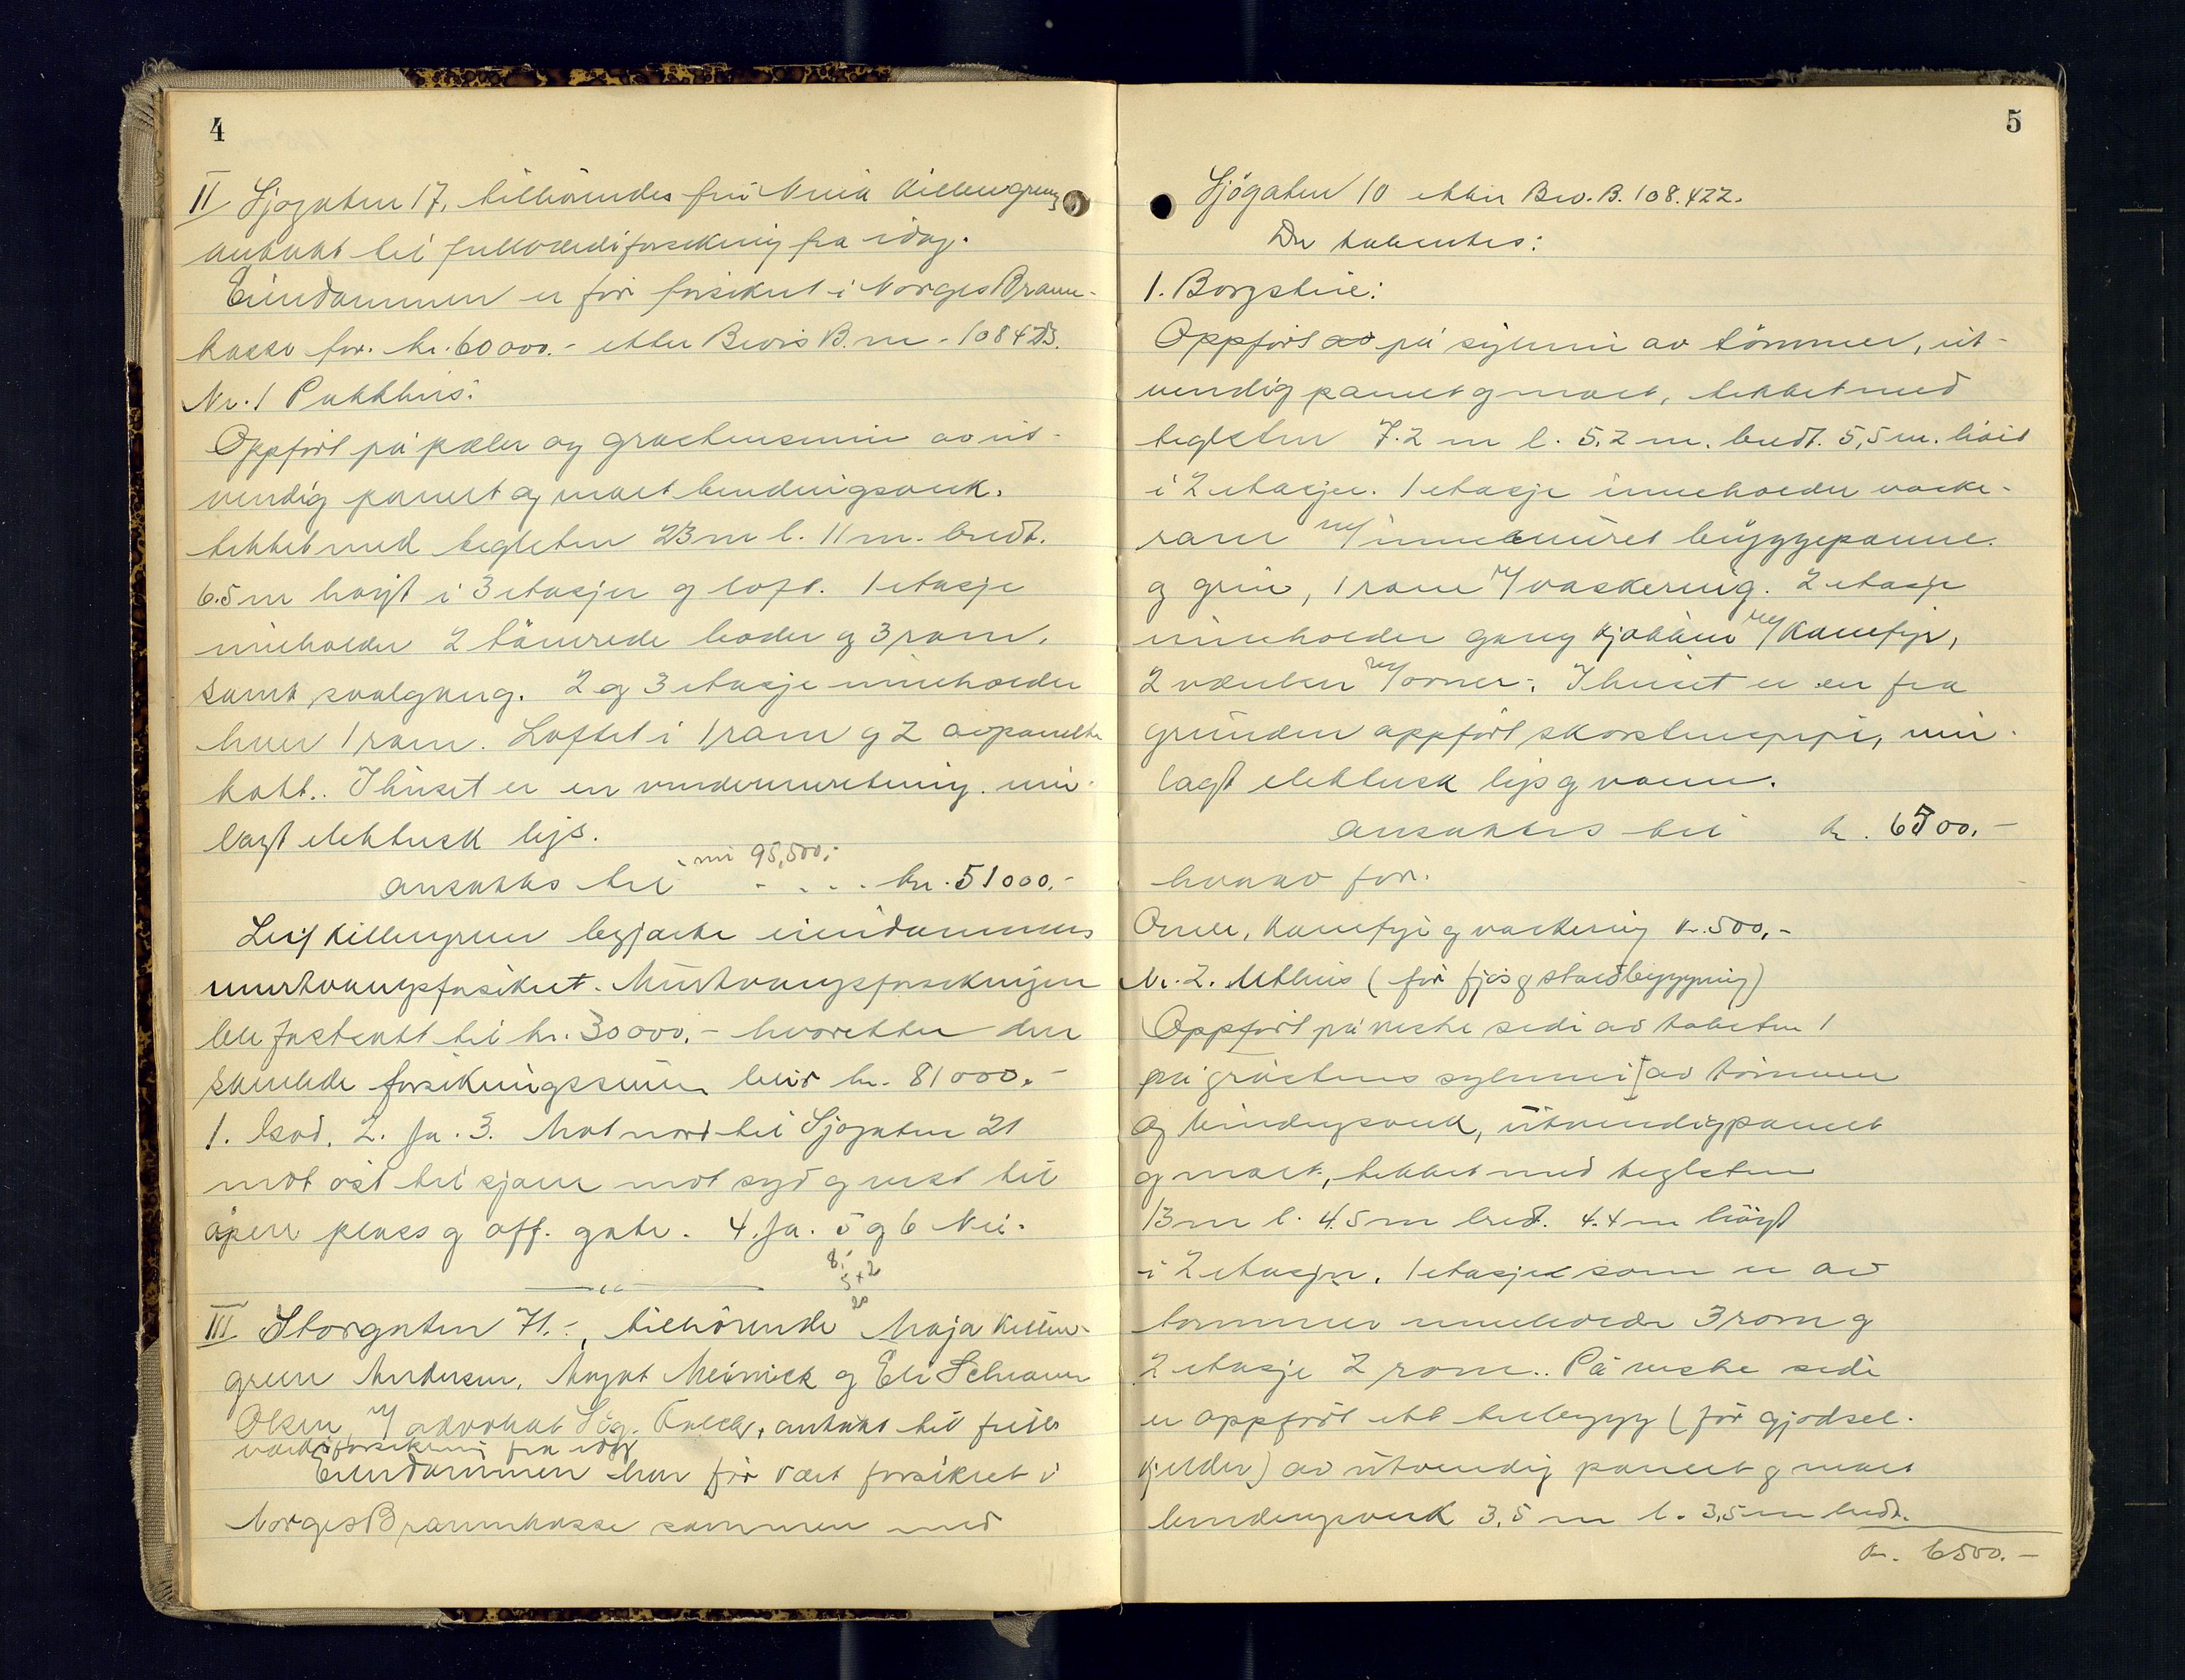 4
II Sjøgaten 17, tilhörendes fru Anna Killengreen
antatt til fullverdiforsikring fra idag.
Eiendommen er før forsikret i Norges Brann-
kasse for kr. 60 000.- etter Bevis B. nr. 108423.
Nr. 1 Pakkhus:
Oppfört på pæler og gråstensmur av ut-
vendig panelt og malt bindingsverk,
tekket med teglsten 23 m l. 11 m. bredt.
6.5 m høyt i 3 etasjer og loft. 1 etasje
inneholder 2 tömrede boder og 3 rom,
samt svalgang. 2 og 3 etasje inneholder
hver 1 rom. Loftet i 1 rom og 2 avpanelte
kott. I huset er en innlagt elektrisk
lagt elektrisk lys.
nu 95,500,-
ansattes til - . . . kr. 51000.-
Leif Killengreen begjærte eiendommens
murtvangsforsikret. Murtvangsforsikringen
ble fastsatt til kr. 30000.- hvoretter den
samlede forsikringssum blir kr. 81000.-
1. God. 2. Ja. 3. Mot nord til Sjøgaten 21
mot öst til sjøen mot syd og vest til
åpen plass og off. gate. 4. Ja. 5 og 6 Nei.
8:
5+2
20
III Storgaten 71.-, tilhörende Maja Killen-
green Andersen, Margot Meinick og Eli Schrøder
Olsen v/ advokat Sig. antatt til full-
verdiforsikring fra idag
Eiendommen har før vært forsikret i
Norges Brannkasse sammen med
5
Sjögaten 10 etter Bev. B. 108.422.
Der takseres:
1. Borgstue:
Oppfört på syllmur av tömmer, ut-
vendig panelt og malt, tekket med
teglsten 7.2 m l. 5.2 m. bredt. 5,5 m. höit
i 2 etasjer. 1 etasje inneholder vaske-
rom m/ innemuret bryggepanne
og grue, 1 rom m/ vaskeovn. 2 etasje
inneholder gang kjøkken m/ komfyr,
2 værelser m/ ovner. I huset er en fra
grunden oppfört skorstenspipe, inn-
lagt elektrisk lys og vann.
ansattes til kr. 6500.-
hvorav for
Ovner, komfyr og vaskeovn kr. 500,-
Nr. 2. Uthus (för fjös og stallbygning)
Oppfört på vestre side av taksten 1
på gråstens syllmur av tömmer
og bindingsverk, utvendig panelt
og malt, tekket med teglsten
13 m l. 4.5 m bred. 4.4 m höyt
i 2 etasjer. 1 etasje som er av
tömmer inneholder 3 rom og
2 etasje 2 rom. På vestre side
er oppfört ett tilbygg (för gjødsel-
kjelder) av utvendig panelt og malt
bindingsverk 3.5 m l. 3,5 m bredt.
kr. 6500.-